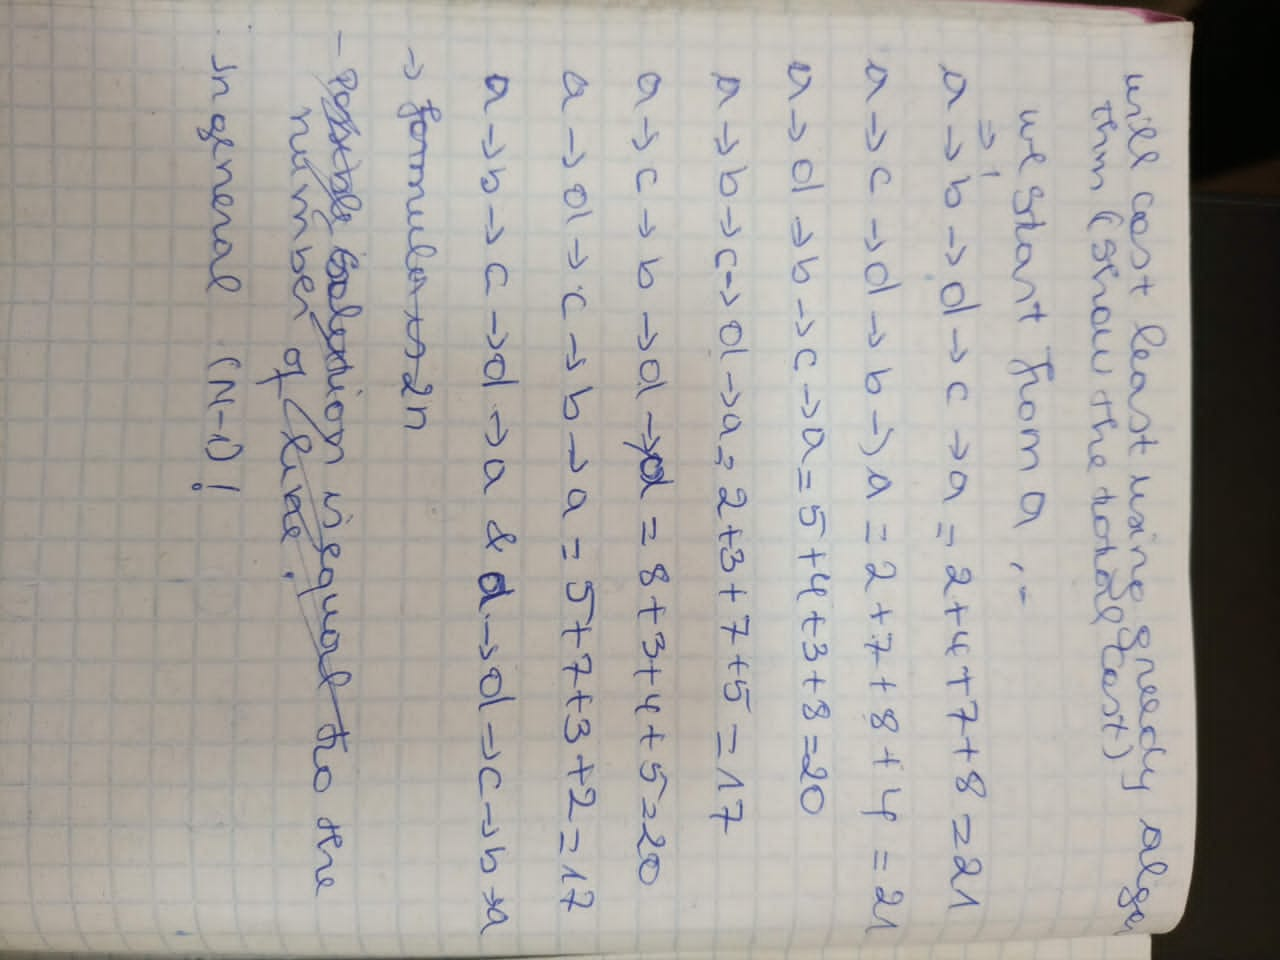 will cost least using greedy algo
thm (show the total cost)
we start from a ,-
⇒ 1
a → b → d → c → a = 2+4+7+8=21
a → c → d → b → a = 2+7+8+4=21
a → d → b → c → a = 5+4+3+8=20
a → b → c → d → a = 2+3+7+5=17
a → c → b → d → d = 8+3+4+5=20
a → d → c → b → a = 5+7+3+2=17
a → b → c → d → a & d → d → c → b → a
→ formula → 2n
- Possible solution is equal to the
number of line.
. In general (N-1)!